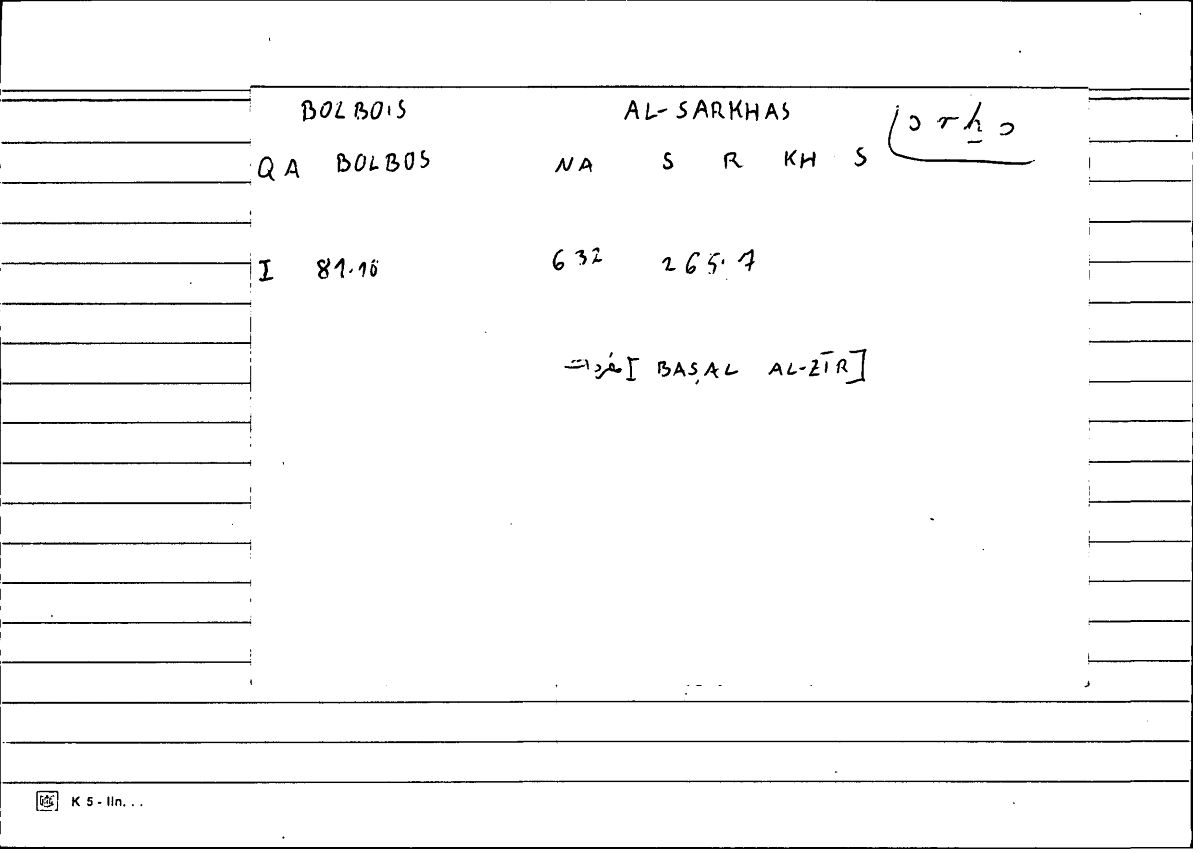 BOLBOIS AL-SARKHAS
QA BOLBOS NA S R KH S
I 81.10 632 265.7
مفردات [BAṢAL AL-ZĪR]
K 5 - lin. . .